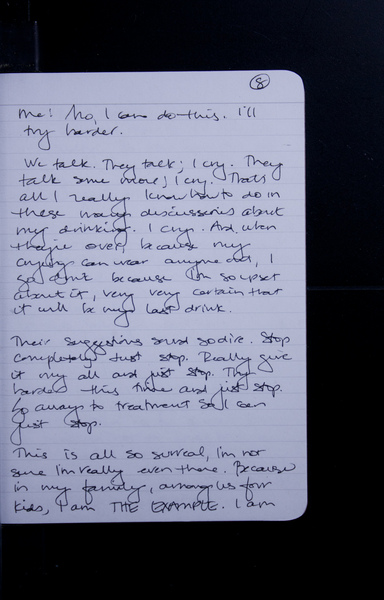 8
me! No, I can do this. I'll
try harder.
We talk. They talk; I cry. They
talk some more; I cry. That's
all I really know how to do in
these many discussions about
my drinking. I cry. And, when
they're over, because my
crying can wear anyone out, I
go drink because I'm so upset
about it, very very certain that
it will be my last drink.
Their suggestions sound so dire. Stop
completely. Just stop. Really give
it my all and just stop. Try
harder this time and just stop.
Go away to treatment so I can
just stop.
This is all so surreal, I'm not
sure I'm really even there. Because
in my family, among us four
kids, I am THE EXAMPLE. I am